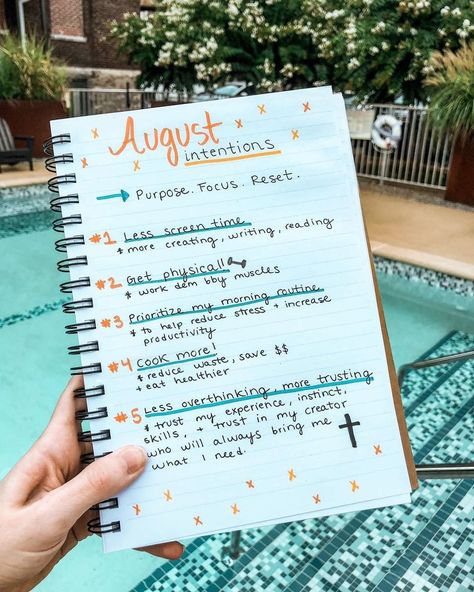 August
intentions
→ Purpose. Focus. Reset.
#1 Less screen time
* more creating, writing, reading
#2 Get physical!
* work dem bby muscles
#3 Prioritize my morning routine
* to help reduce stress + increase
productivity
#4 Cook more!
* reduce waste, save $$
* eat healthier
#5 Less overthinking, more trusting
* trust my experience, instinct,
skills, + trust in my creator
who will always bring me
what I need.